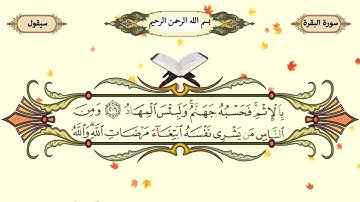 سورة البقرة
بسم الله الرحمن الرحيم
سيقول
بِالْإِثْمِ ۚ فَحَسْبُهُ جَهَنَّمُ ۚ وَلَبِئْسَ الْمِهَادُ ٢٠٦ وَمِنَ
النَّاسِ مَن يَشْرِى نَفْسَهُ ابْتِغَآءَ مَرْضَاتِ اللَّهِ ۗ وَاللَّهُ